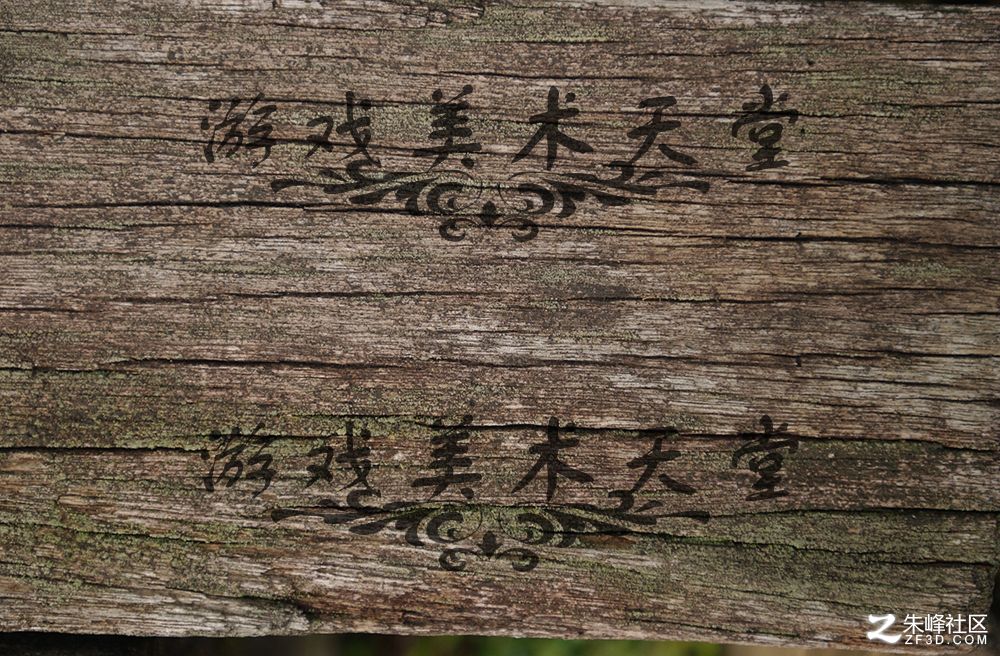 游戏美术天堂
游戏美术天堂
朱峰社区
ZF3D.COM